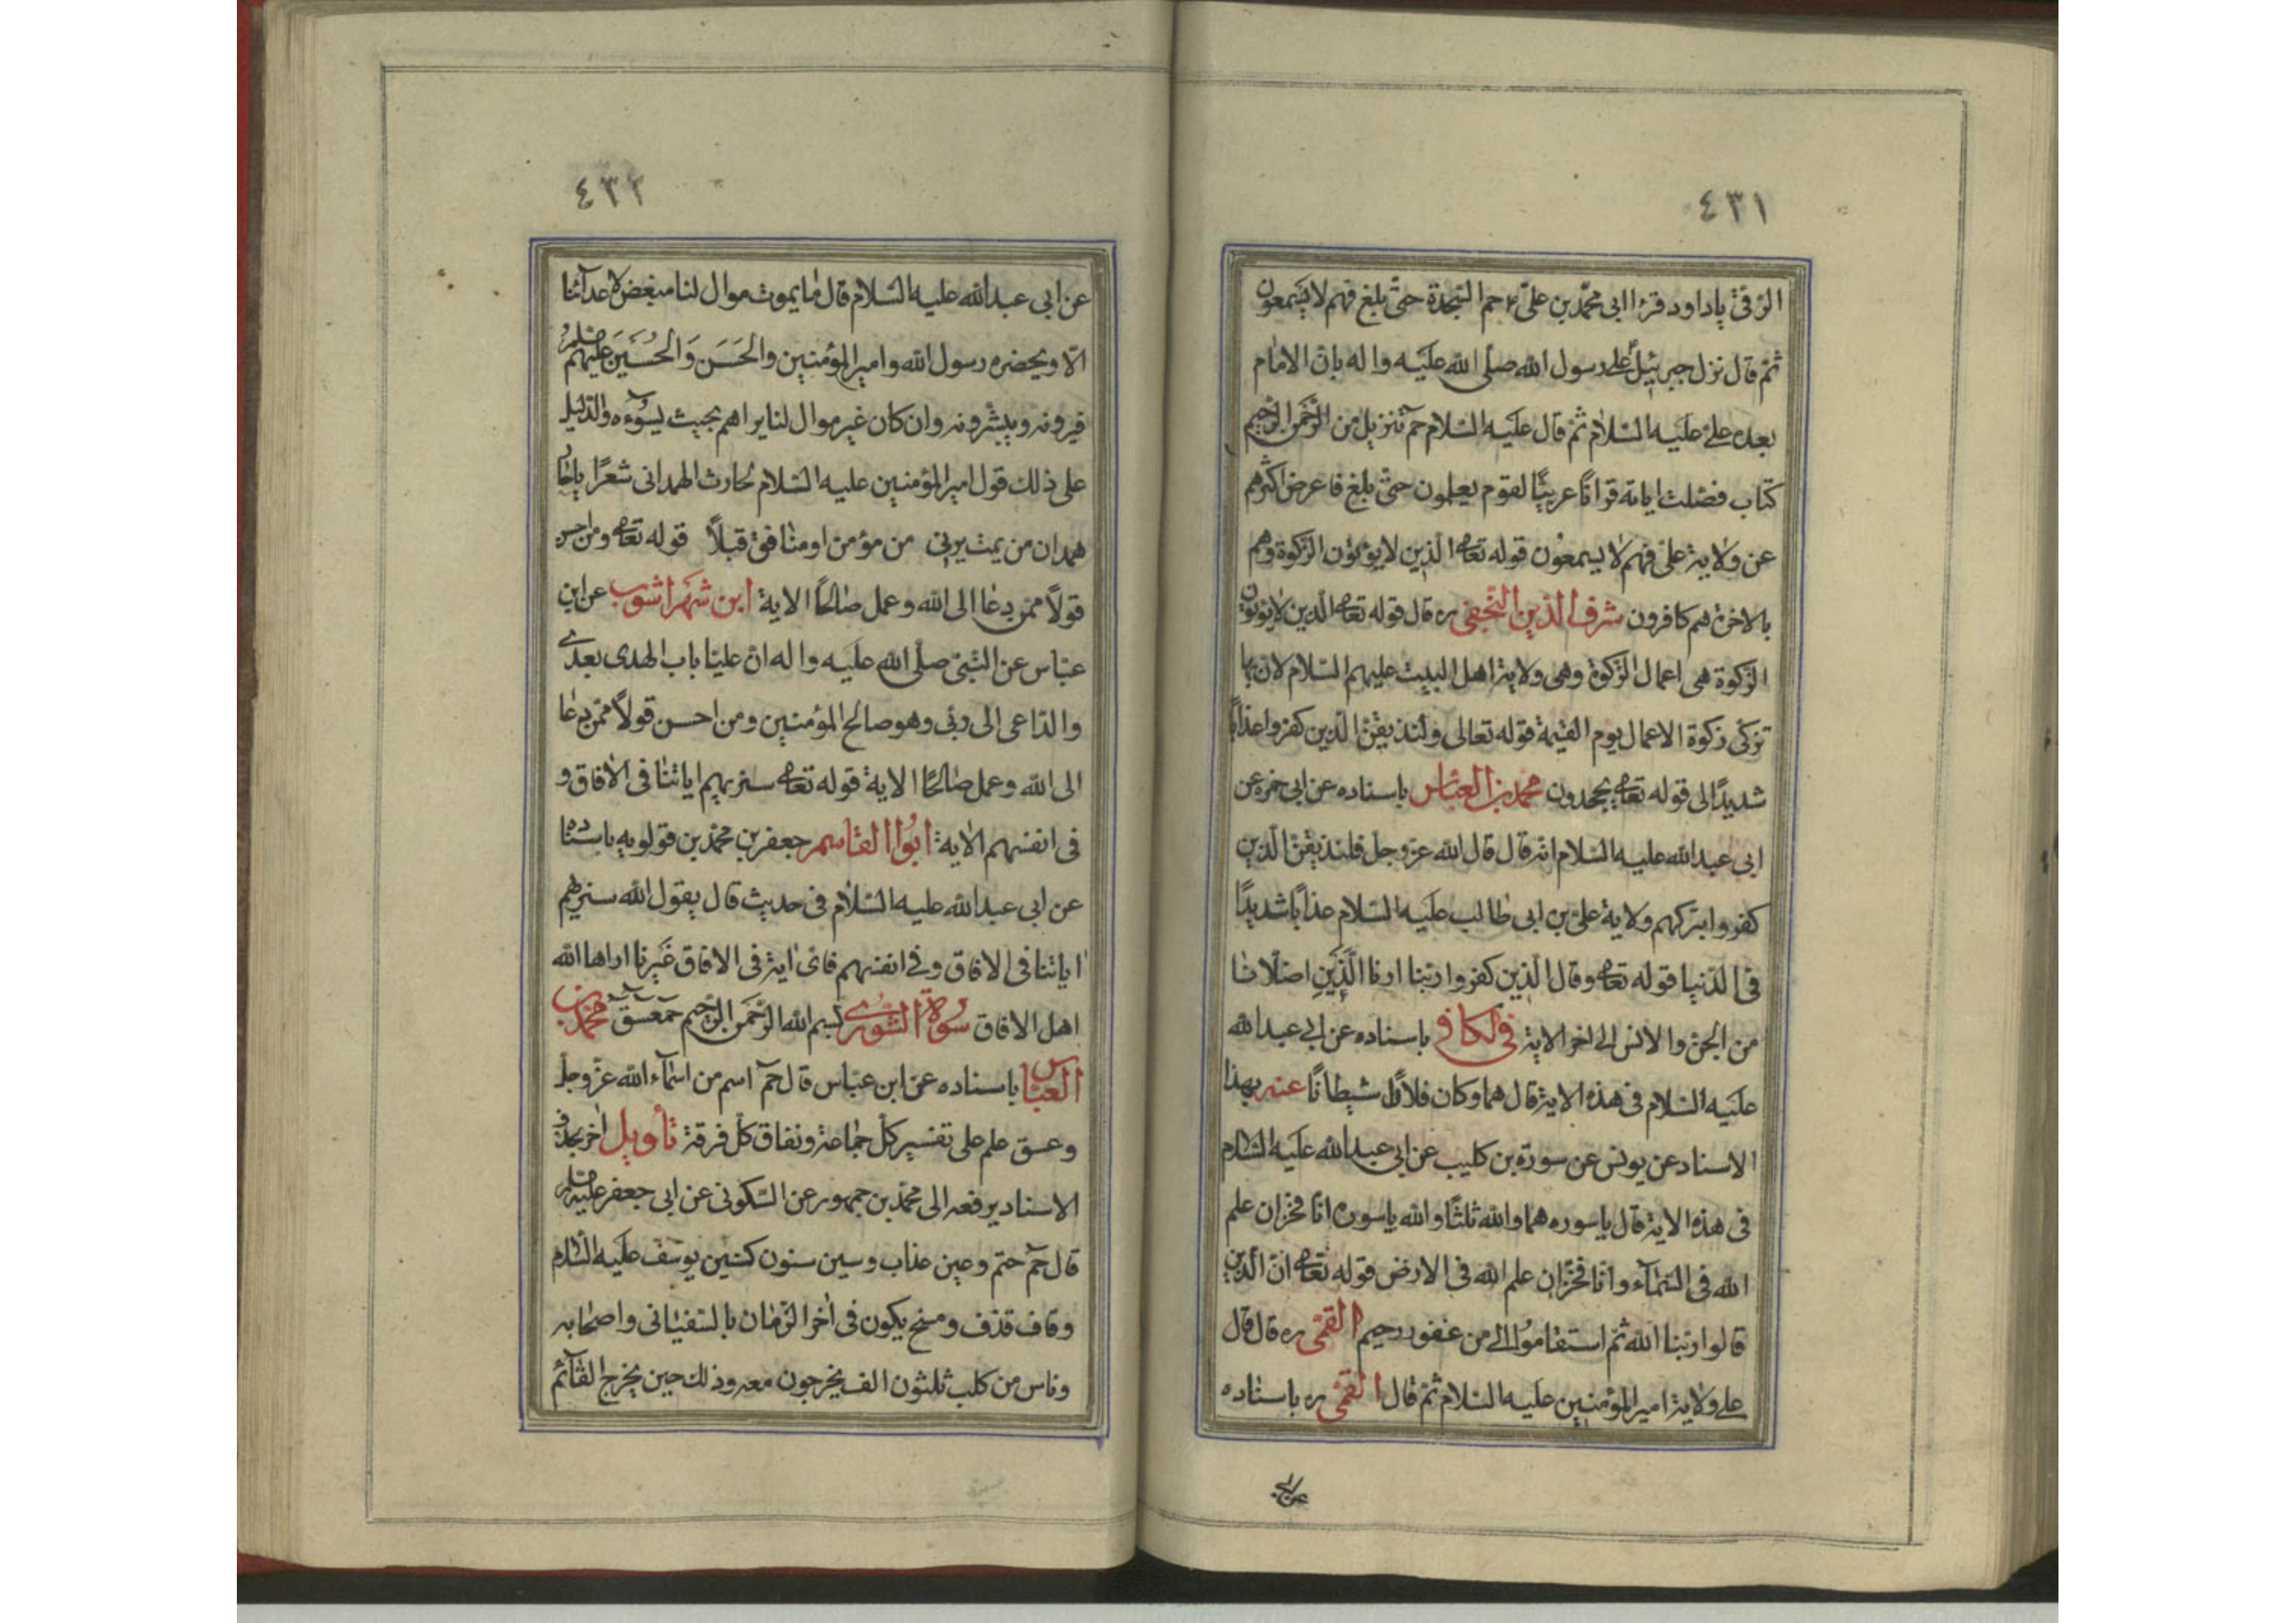 ٤٣١
الرقى يا داود قرءا ابى محمّد بن علىّ ء حم السّجدة حتّى بلغ فهم لا يسمعون
ثم قال نزل جبرئيل على رسول الله صلّى الله عليه واله بانّ الامام
بعده علىّ عليه السّلام ثمّ قال عليه السّلام حم تنزيل من الرّحمن الرّحيم
كتاب فصّلت اياته قرانًا عربيًّا لقوم يعلمون حتّى بلغ فاعرض اكثرهم
عن ولاية علىّ فهم لا يسمعون قوله تعالى الّذين لا يؤتون الزّكوة وهم
بالاخرة هم كافرون شرف الدّين النّجفى ره قال قوله تعالى الّذين لا يؤتون
الزّكوة هى اعمال الزّكوة وهى ولاية اهل البيت عليهم السّلام لانّ بها
تزكى زكوة الاعمال يوم القيمة قوله تعالى ولنذيقنّ الّذين كفروا عذابًا
شديدًا الى قوله تعالى يجحدون محمد بن العبّاس باسناده عن ابى حمزه عن
ابى عبدالله عليه السّلام انّه قال قال الله عزّ وجلّ فلنذيقنّ الّذين
كفروا بتركهم ولاية علىّ بن ابى طالب عليه السّلام عذابًا شديدًا
فى الدّنيا قوله تعالى وقال الّذين كفروا ربّنا ارنا الّذين اضلّانا
من الجنّ والانس الى اخر الاية فى الكافى باسناده عن ابى عبدالله
عليه السّلام فى هذه الاية قال هما وكان فلان شيطانًا عنه بهذا
الاسناد عن يونس عن سورة بن كليب عن ابى عبدالله عليه السّلام
فى هذه الاية قال يا سوره هما والله ثلثًا والله يا سوره انّا لخزّان علم
الله فى السّمآء وانّا لخزّان علم الله فى الارض قوله تعالى انّ الّذين
قالوا ربّنا الله ثمّ استقاموا الى من غفور رحيم القمّى ره قال قال
على ولاية اميرالمؤمنين عليه السّلام ثمّ قال القمّى ره باسناده
عن ابى
٤٣٢
عن ابى عبدالله عليه السّلام قال ما يموت موال لنا مبغض لاعدائنا
الّا ويحضره رسول الله واميرالمؤمنين والحَسَن وَالحُسَينَ عليهم
فيرونه ويبشّرونه وان كان غير موال لنا يراهم بحيث يسوءه والدّليل
على ذلك قول اميرالمؤمنين عليه السّلام لحارث الهمدانى شعرًا ياحار
همدان من يمت يرنى من مؤمن او منافق قبلاً قوله تعالى ومن احسن
قولاً ممّن دعا الى الله وعمل صالحًا الاية ابن شهراشوب عن ابن
عبّاس عن النّبىّ صلّى الله عليه واله انّ عليّا باب الهدى بعدى
والدّاعى الى ربّى وهو صالح المؤمنين ومن احسن قولاً ممّن دعا
الى الله وعمل صالحًا الاية قوله تعالى سنريهم اياتنا فى الافاق و
فى انفسهم الاية ابوا القاسم جعفر بن محمّد بن قولويه باسناده
عن ابى عبدالله عليه السّلام فى حديث قال يقول الله سنريهم
اياتنا فى الافاق وفى انفسهم فاىّ اية فى الافاق غَيرنا اراها الله
اهل الافاق سُورة الشّورى بسم الله الرّحمن الرّحيم حمعسق محمّد بن
العبّاس باسناده عن ابن عبّاس قال حم اسم من اسمآء الله عزّ وجلّ
وعسق علم على تفسير كلّ جماعة ونفاق كلّ فرقة تأويل اخر بحذف
الاسناد يرفعه الى محمّد بن جمهور عن السّكونى عن ابى جعفر عليه السّلم
قال حم حتم وعين عذاب وسين سنون كسنين يوسف عليه السّلام
وقاف قذف ومسخ يكون فى اخر الزّمان بالسّفيانى واصحابه
وناس من كلب ثلثون الف يخرجون معه وذلك حين يخرج القآئم